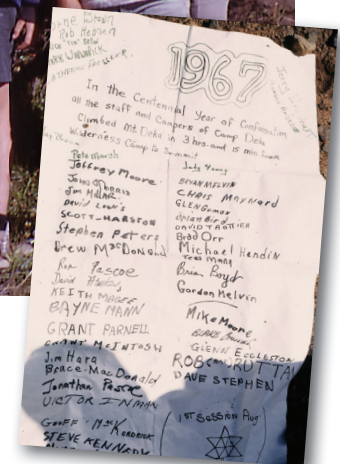 Brown
Rob
1967
In the Centennial Year of Confederation
all the staff and Campers of Camp Deka
Climbed Mt. Deka in 3 hrs. and 15 min. from
Wilderness Camp to Summit
Pete Marsh
Jeffrey Moore
John Morris
Jim
David Lewis
SCOTT HARSTON
Stephen Peters
Drew MacDonald
Ron Pascoe
David
KEITH MAGEE
BAYNE MANN
GRANT PARNELL
GRANT McINTOSH
Jim Hara
Bruce MacDonald
Jonathan Pascoe
VICTOR INMAN
GEOFF
STEVE KENNEDY
Judy Young
BRYAN MELVIN
CHRIS MAYNARD
GLEN Gumar
Brian Bird
DAVID TROTTIER
Brad Orr
Michael Hendin
Brian Boyd
Gordon Melvin
Mike Moore
BLAKE
GLENN ECCLESTON
ROB
DAVE STEPHEN
1st Session Aug